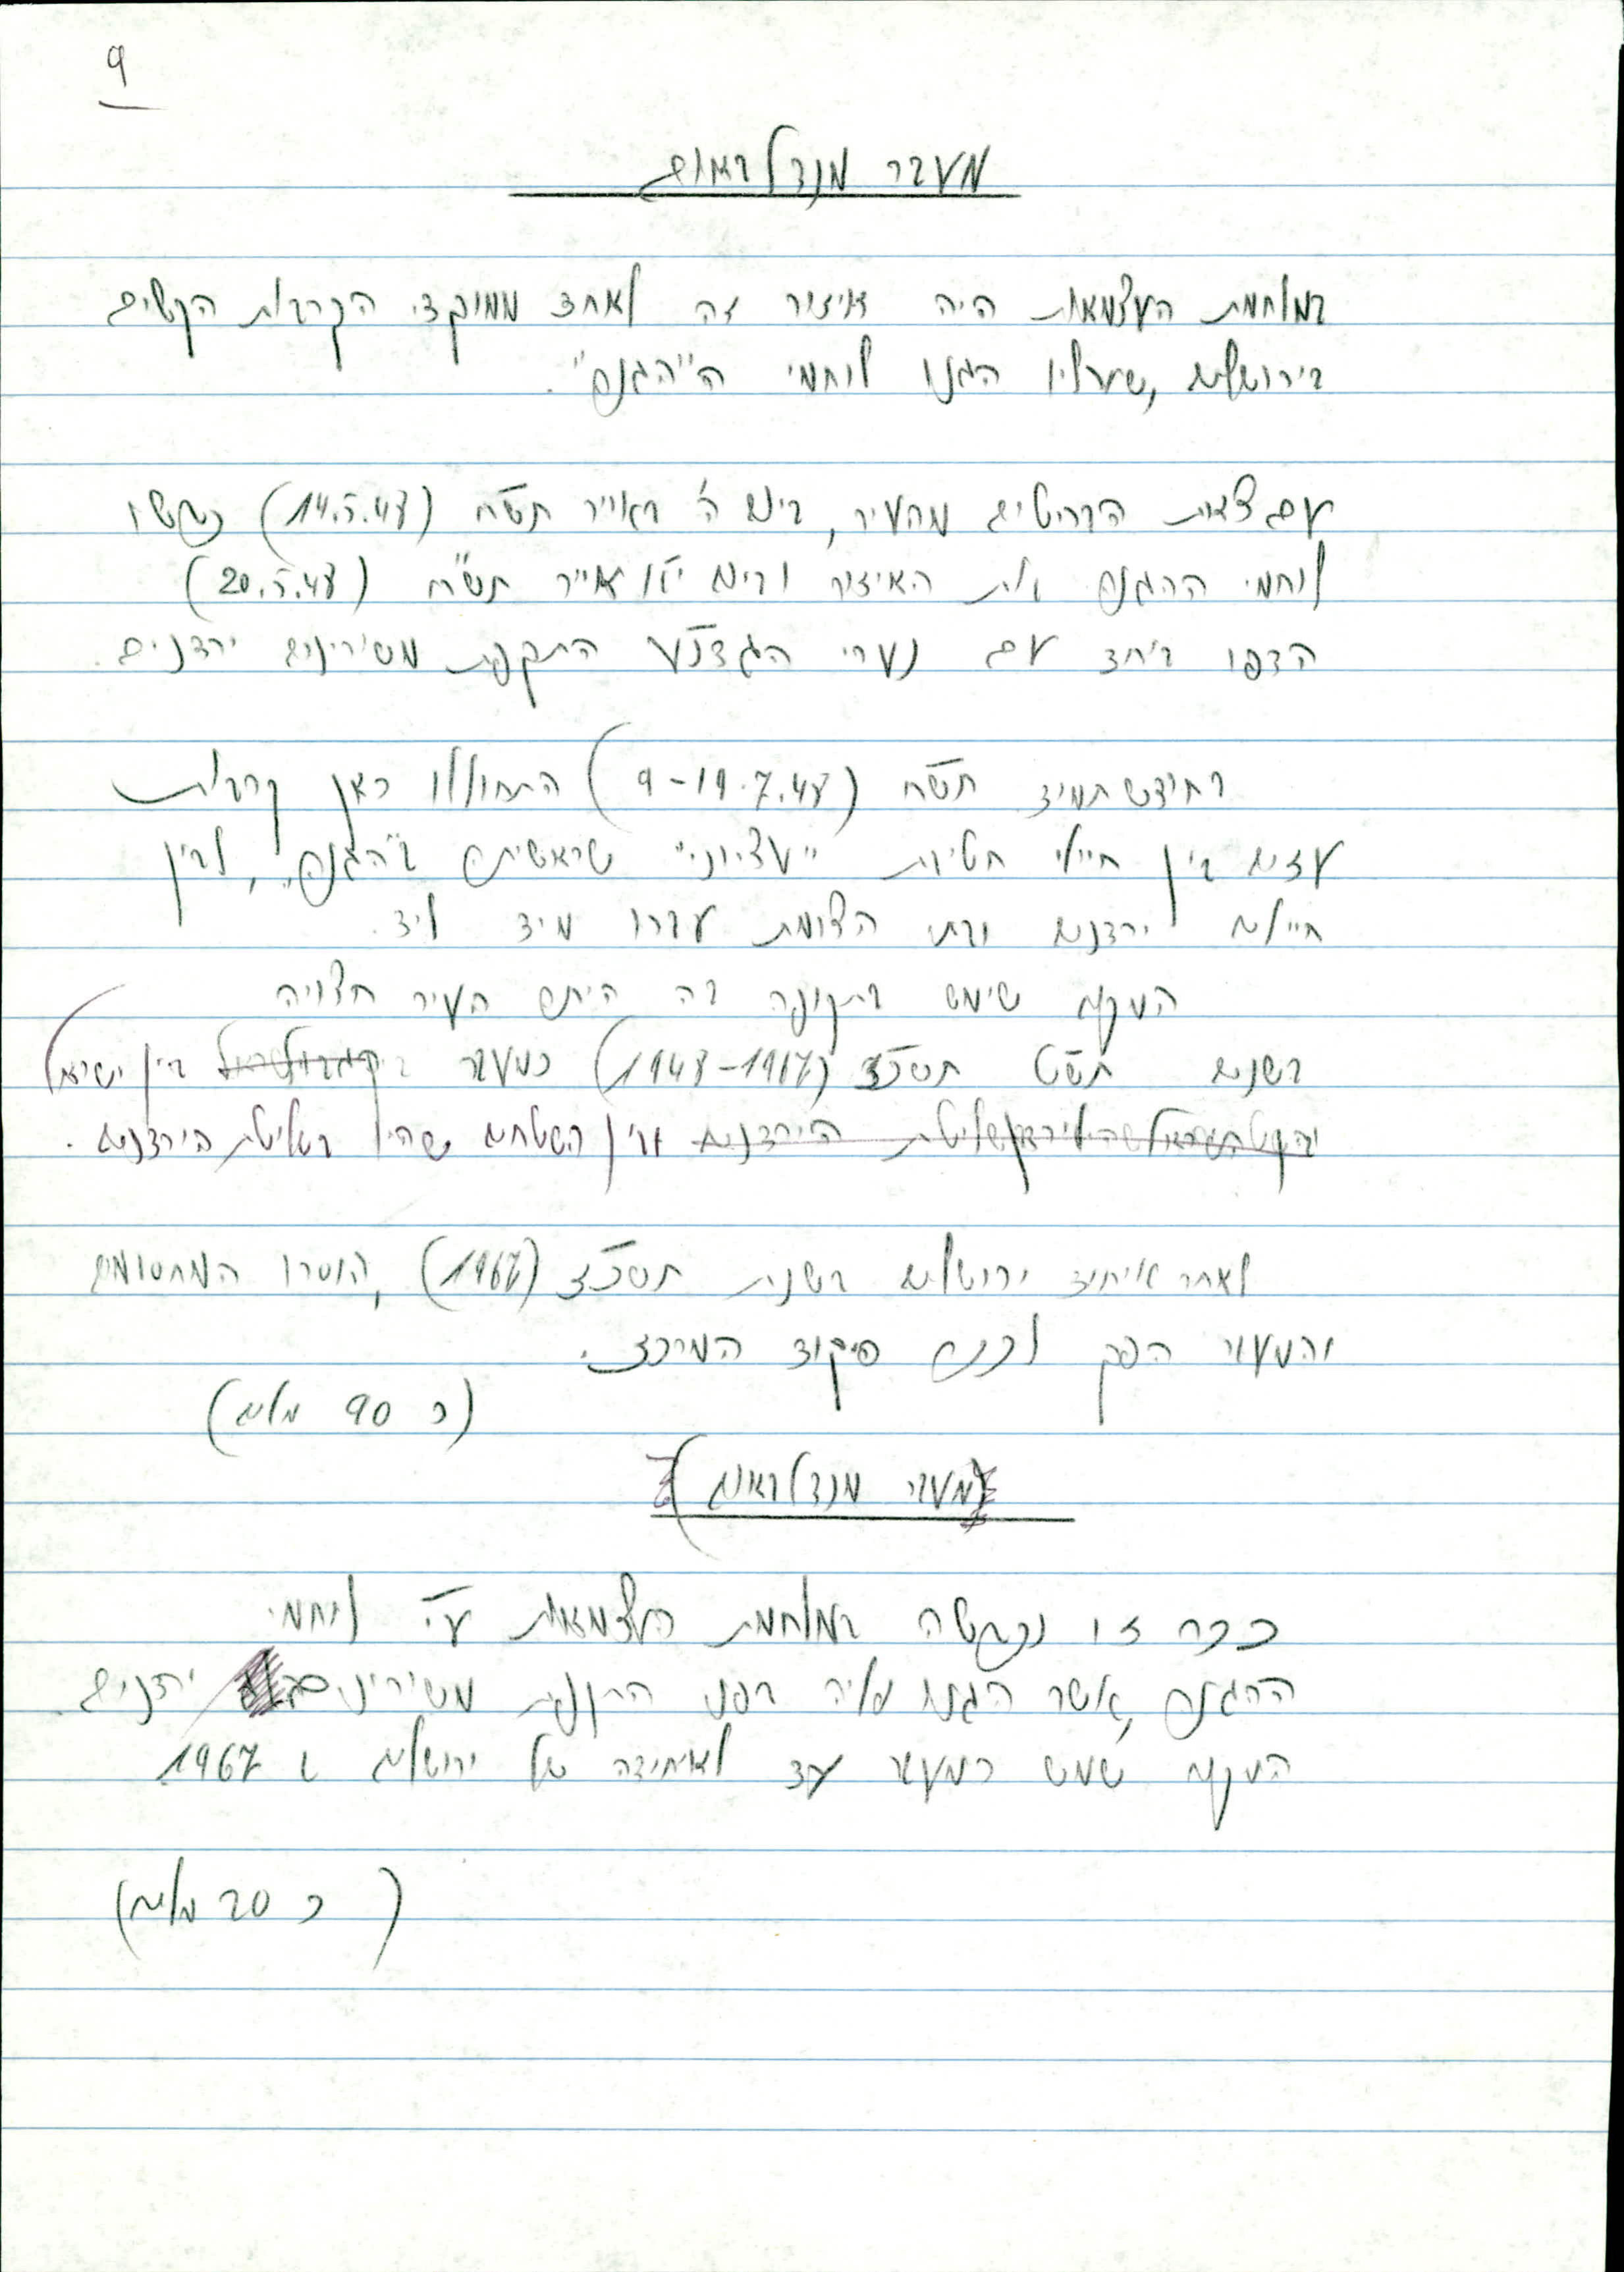 9
מעבר מנדלבאום
במלחמת העצמאות היה איזור זה לאחד ממוקדי הקרבות הקשים
בירושלים, שעליו הגנו לוחמי ה"הגנה".
עם צאת הבריטים מהעיר, ביום ה' באייר תש"ח (14.5.48) כבשו
לוחמי ההגנה את האיזור וביום י"א אייר תש"ח (20.5.48)
הדפו ביחד עם נערי הגדנ"ע התקפת משוריינים ירדנים.
בחודש תמוז תש"ח (9-19.7.48) התחוללו כאן קרבות
עזים בין חיילי חטיבת "עציוני" שראשיתה ב"הגנה", לבין
חיילים ירדנים ובתי הצומת עברו מיד ליד.
המקום שימש בתקופה בה היתה העיר חצויה
בשנים תש"ט תשכ"ז (1948-1967) כמעבר בין ישראל
הירדנים ובין השטחים שהיו בשליטת הירדנים.
לאחר איחוד ירושלים בשנת תשכ"ז (1967), הוסרו המחסומים
והמעבר הפך לככר פיקוד המרכז.
(כ 90 מלים)
(מעבר מנדלבאום)
ככר זו נכבשה במלחמת העצמאות ע"י לוחמי
ההגנה, אשר הגנו עליה בפני התקפת משוריינים ירדנים.
המקום שמש כמעבר עד לאיחודה של ירושלים ב 1967
(כ 20 מלים)